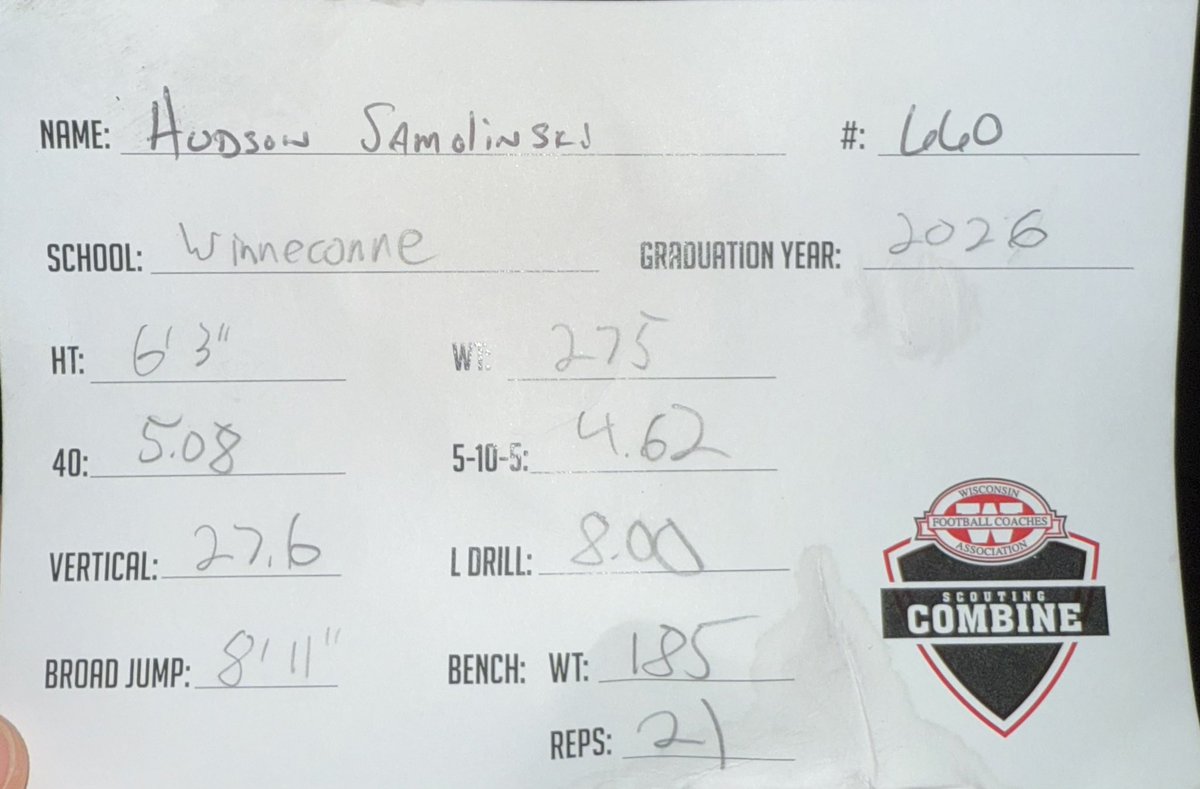 NAME: HUDSON SAMOLINSKI #: 660
SCHOOL: Winneconne GRADUATION YEAR: 2026
HT: 6'3" WT: 275
40: 5.08 5-10-5: 4.62
VERTICAL: 27.6 L DRILL: 8.00
BROAD JUMP: 8'11" BENCH: WT: 185
REPS: 21
WISCONSIN
W
FOOTBALL COACHES
ASSOCIATION
SCOUTING
COMBINE